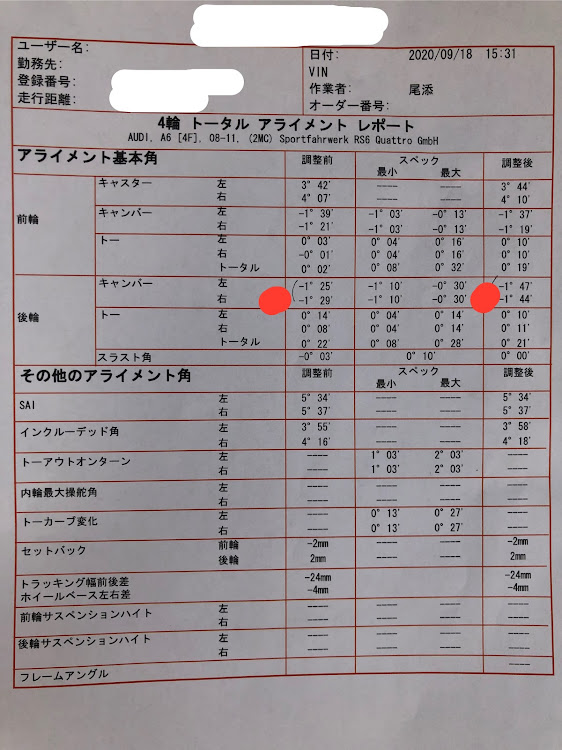 ユーザー名:
勤務先:
登録番号:
走行距離:
日付: 2020/09/18 15:31
VIN
作業者: 尾添
オーダー番号:
4輪 トータル アライメント レポート
AUDI, A6 [4F], 08-11, (2MC) Sportfahrwerk RS6 Quattro GmbH
アライメント基本角 調整前 スペック 調整後
最小 最大
前輪
キャスター 左 3° 42' ---- ---- 3° 44'
右 4° 07' ---- ---- 4° 10'
キャンバー 左 -1° 39' -1° 03' -0° 13' -1° 37'
右 -1° 21' -1° 03' -0° 13' -1° 19'
トー 左 0° 03' 0° 04' 0° 16' 0° 10'
右 -0° 01' 0° 04' 0° 16' 0° 10'
トータル 0° 02' 0° 08' 0° 32' 0° 19'
後輪
キャンバー 左 -1° 25' -1° 10' -0° 30' -1° 47'
右 -1° 29' -1° 10' -0° 30' -1° 44'
トー 左 0° 14' 0° 04' 0° 14' 0° 10'
右 0° 08' 0° 04' 0° 14' 0° 11'
トータル 0° 22' 0° 08' 0° 28' 0° 21'
スラスト角 -0° 03' 0° 10' 0° 00'
その他のアライメント角 調整前 スペック 調整後
最小 最大
SAI 左 5° 34' ---- ---- 5° 34'
右 5° 37' ---- ---- 5° 37'
インクルーデッド角 左 3° 55' ---- ---- 3° 58'
右 4° 16' ---- ---- 4° 18'
トーアウトオンターン 左 ---- 1° 03' 2° 03' ----
右 ---- 1° 03' 2° 03' ----
内輪最大操舵角 左 ---- ---- ---- ----
右 ---- ---- ---- ----
トーカーブ変化 左 ---- 0° 13' 0° 27' ----
右 ---- 0° 13' 0° 27' ----
セットバック 前輪 -2mm ---- ---- -2mm
後輪 2mm ---- ---- 2mm
トラッキング幅前後差 -24mm ---- ---- -24mm
ホイールベース左右差 -4mm ---- ---- -4mm
前輪サスペンションハイト 左 ---- ---- ---- ----
右 ---- ---- ---- ----
後輪サスペンションハイト 左 ---- ---- ---- ----
右 ---- ---- ---- ----
フレームアングル ---- ----